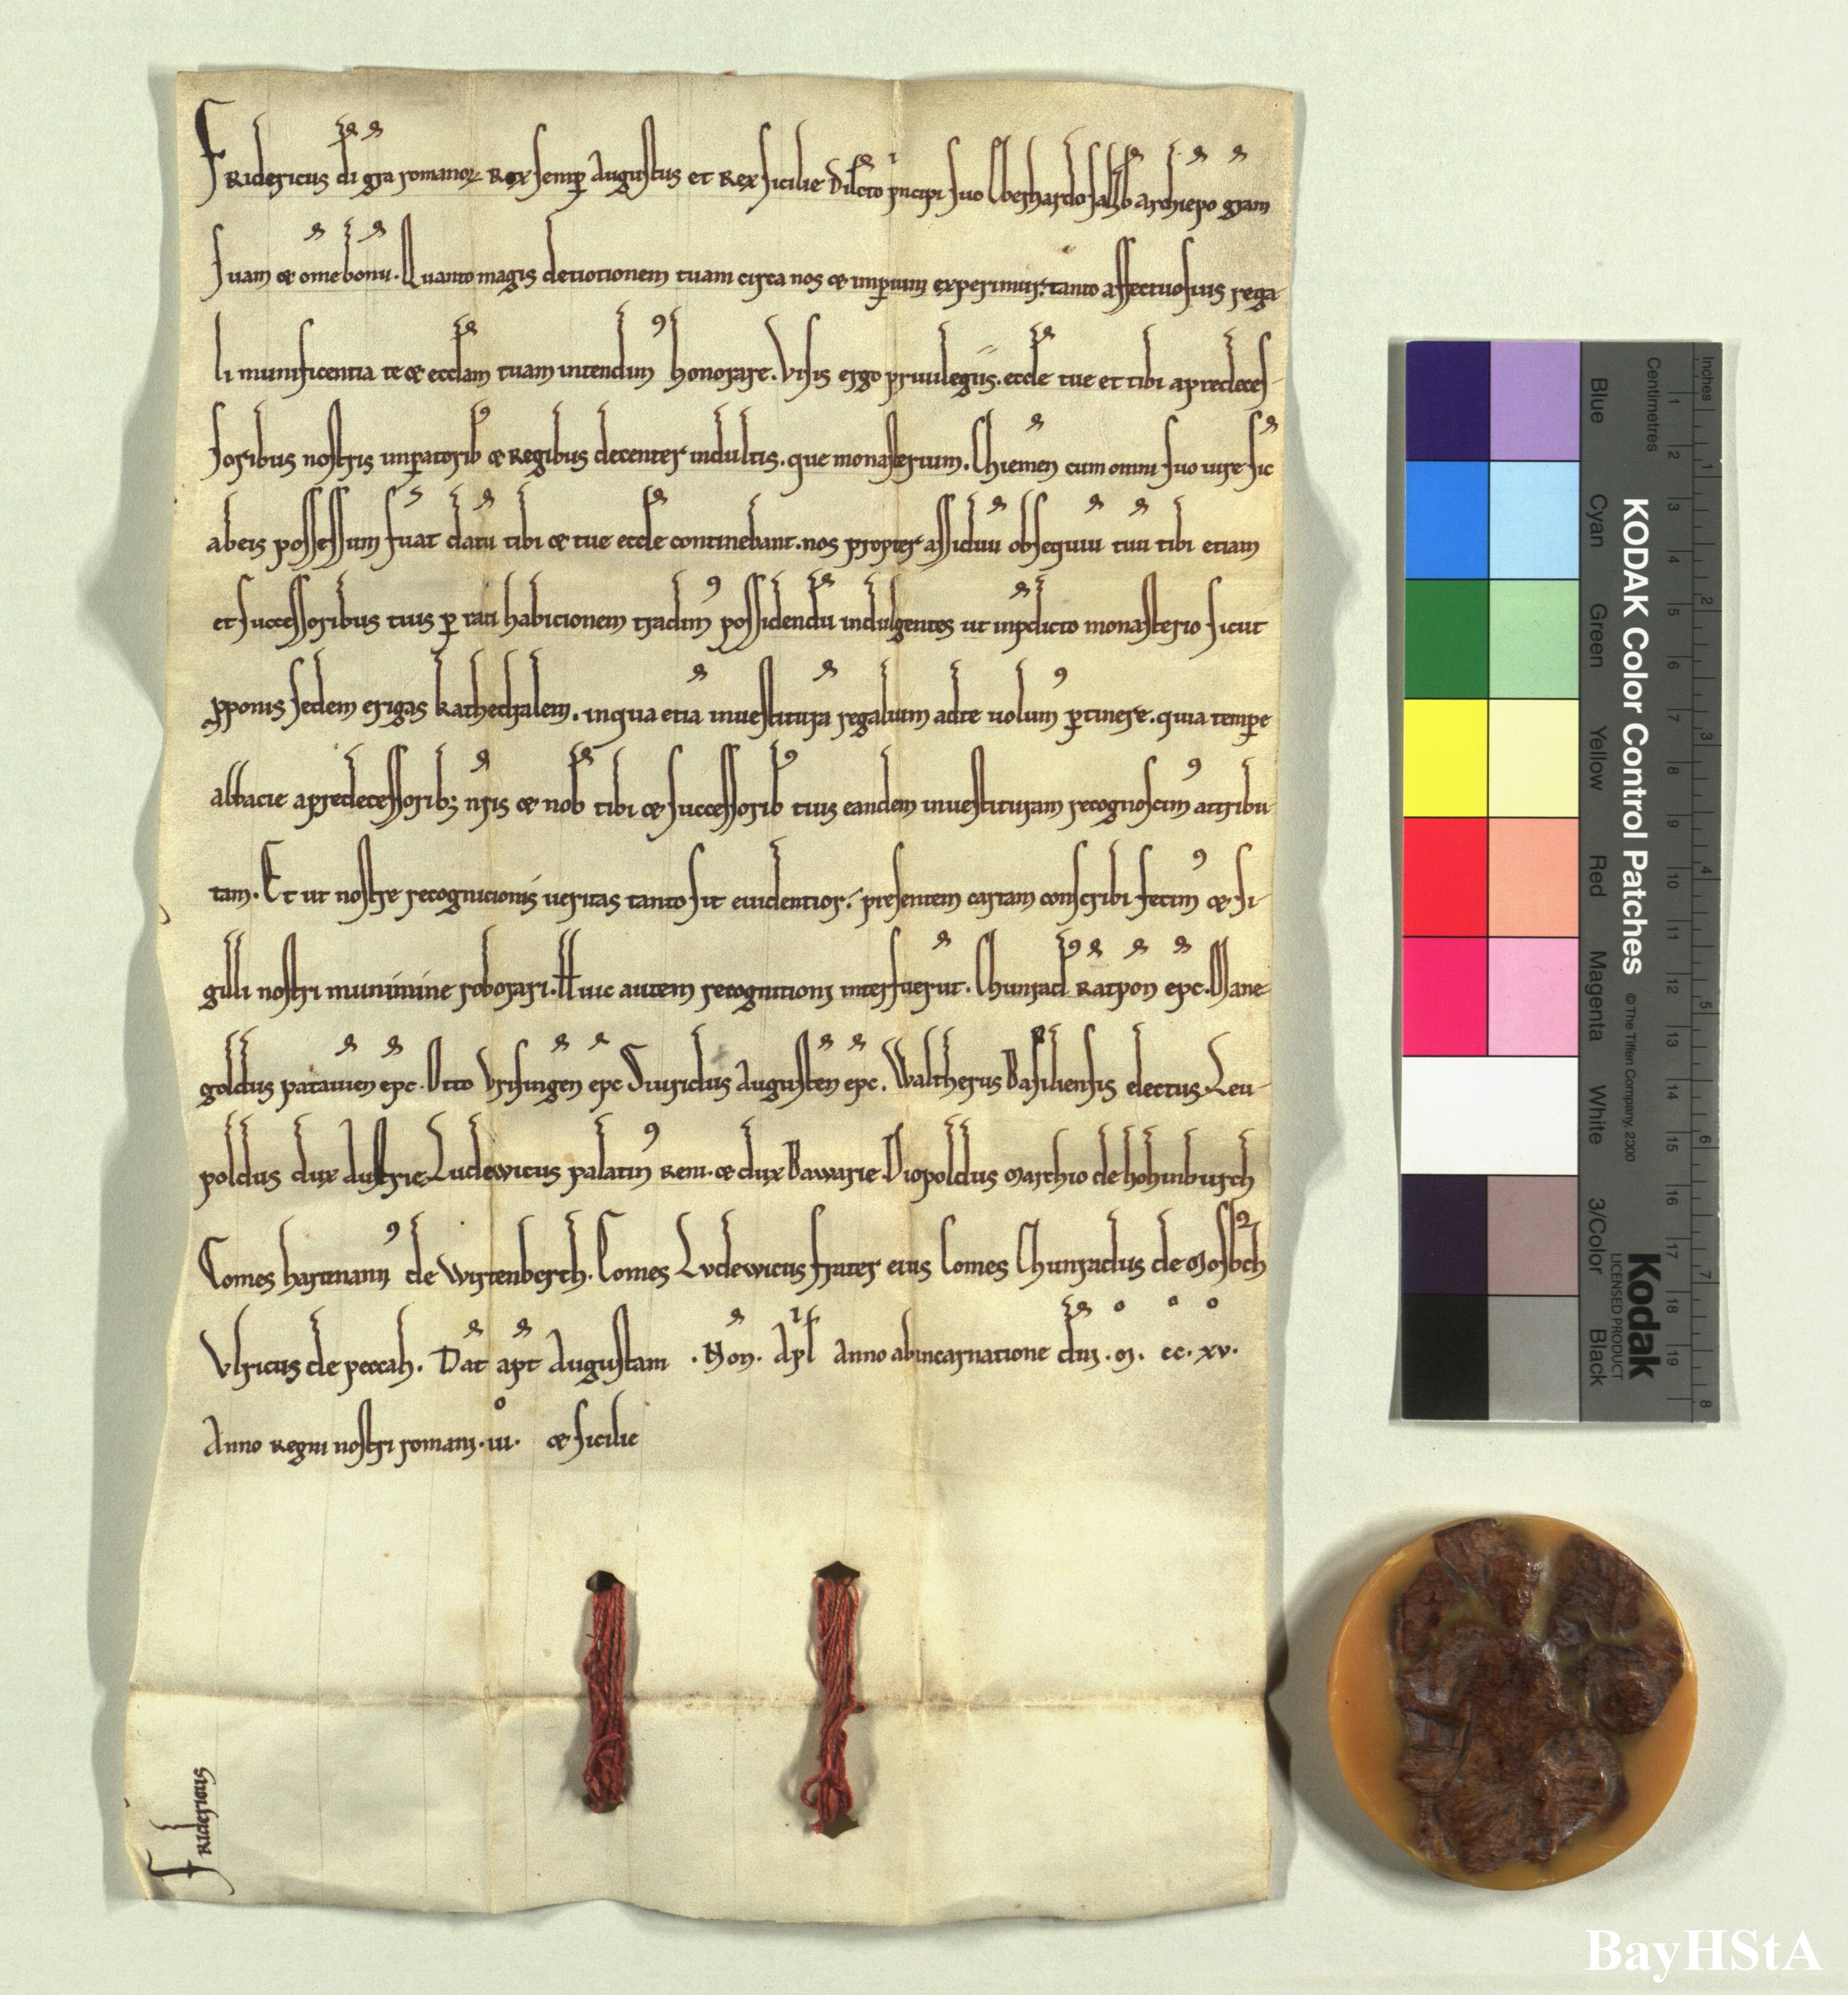 Fridericus di gra romanoꝝ Rex semꝑ Augustus et Rex sicilie Dilcto pncipi suo Eberhardo salzb archiepo gram
suam et omē bonū. Quanto magis deuotionem tuam circa nos et imꝑium experimur: tanto affectuosius rega-
li munificentia te et eccłam tuam intendimꝰ honorare. Visis ergo priuilegiis. eccłe tue et tibi a predeces-
soribus nostris imꝑatoribꝰ et Regibus decenter indultis. que monasterium. Chiemen̄ cum omni suo iure sic̄
ab eis possessum fuat datū tibi et tue eccłe continebant. nos propter assiduū obsequiū tuū tibi etiam
et successoribus tuis ꝑ rati habicionem tradimꝰ possidendū indulgentes ut in p̄dicto monasterio sicut
ꝓponis sedem erigas kathedralem. in qua etiā inuestiturā regalium ad te uolumꝰ ꝑtinere. quia tempꝑe
abbacie a predecessoribꝫ nr̄is et nob̄ tibi et successoribꝰ tuis eandem inuestituram recognoscimꝰ attribu-
tam. Et ut nostre recognicionis ueritas tanto sit euidentior: presentem cartam conscribi fecimꝰ et si-
gilli nostri munimine roborari. Huic autem recognitioni interfuerūt. Chunradꝰ Ratpon̄ ep̄c. Mane-
goldus patauien̄ ep̄c. Otto Vrisingen̄ ep̄c Siuridus Augusten̄ ep̄c. Waltherus Basiliensis electus. Leu-
poldus dux Austrie Ludewicus palatinꝰ Reni. et dux Bawarie. Diopoldus marchio de hohinburch
Comes hartmannꝰ de Wirtenberch. Comes Lvdewicus frater eius Comes Chunradus de Mosbch
Vlricus de peccah. Dat̄ apt̄ Augustam .Non̄. Apl Anno ab incarnatione dn̄i. M. cc. xv.
Anno Regni nostri romani. iii. et sicilie
Fridericus
KODAK Color Control Patches
© The Tiffen Company, 2000
Kodak
LICENSED PRODUCT
Blue
Cyan
Green
Yellow
Red
Magenta
White
3/Color
Black
Centimetres
1 2 3 4 5 6 7 8 9 10 11 12 13 14 15 16 17 18 19
Inches
1 2 3 4 5 6 7 8
BayHStA